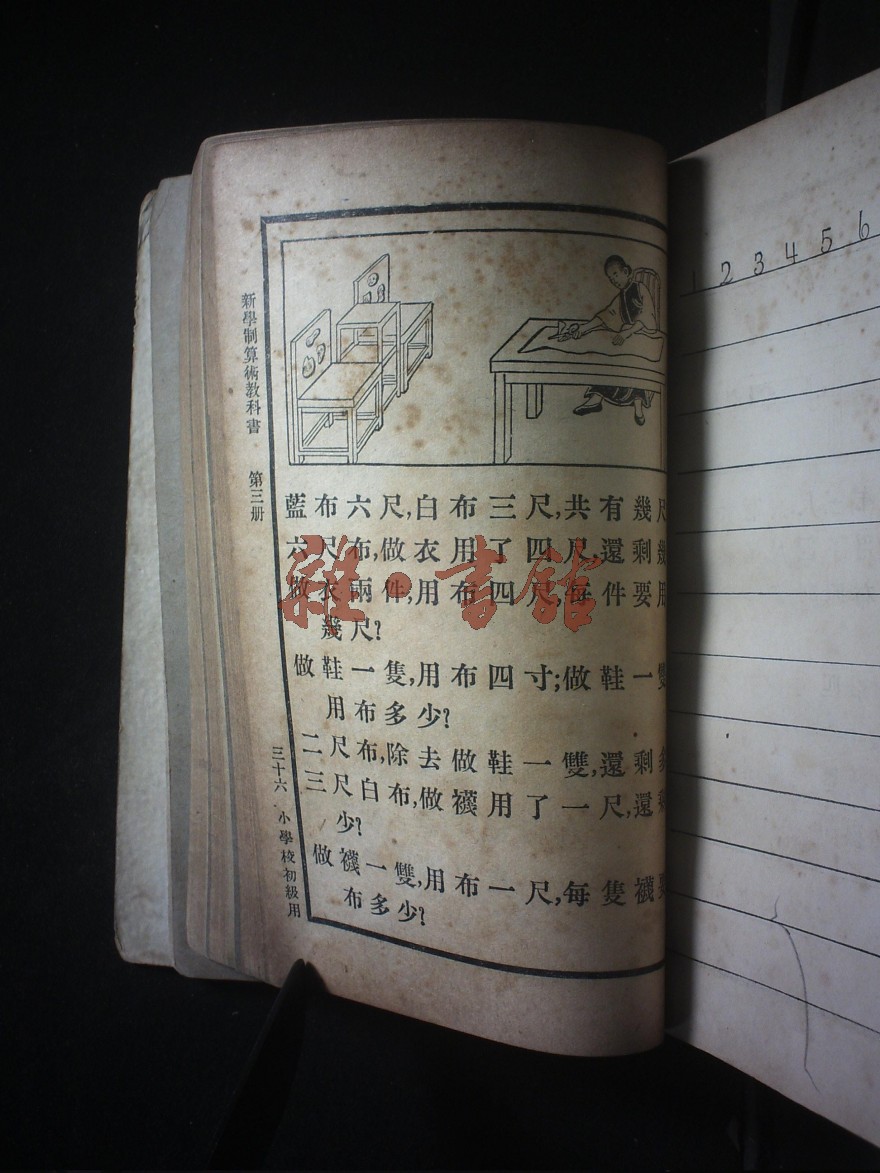 新學制算術教科書 第三册
藍布六尺,白布三尺,共有幾尺
六尺布,做衣用了四尺,還剩幾
做衣兩件,用布四尺,每件要用
幾尺?
做鞋一隻,用布四寸;做鞋一雙
用布多少?
二尺布,除去做鞋一雙,還剩多
三尺白布,做襪用了一尺,還剩
少?
做襪一雙,用布一尺,每隻襪要
布多少?
三十六 小學校初級用
雜·書館
1 2 3 4 5 6